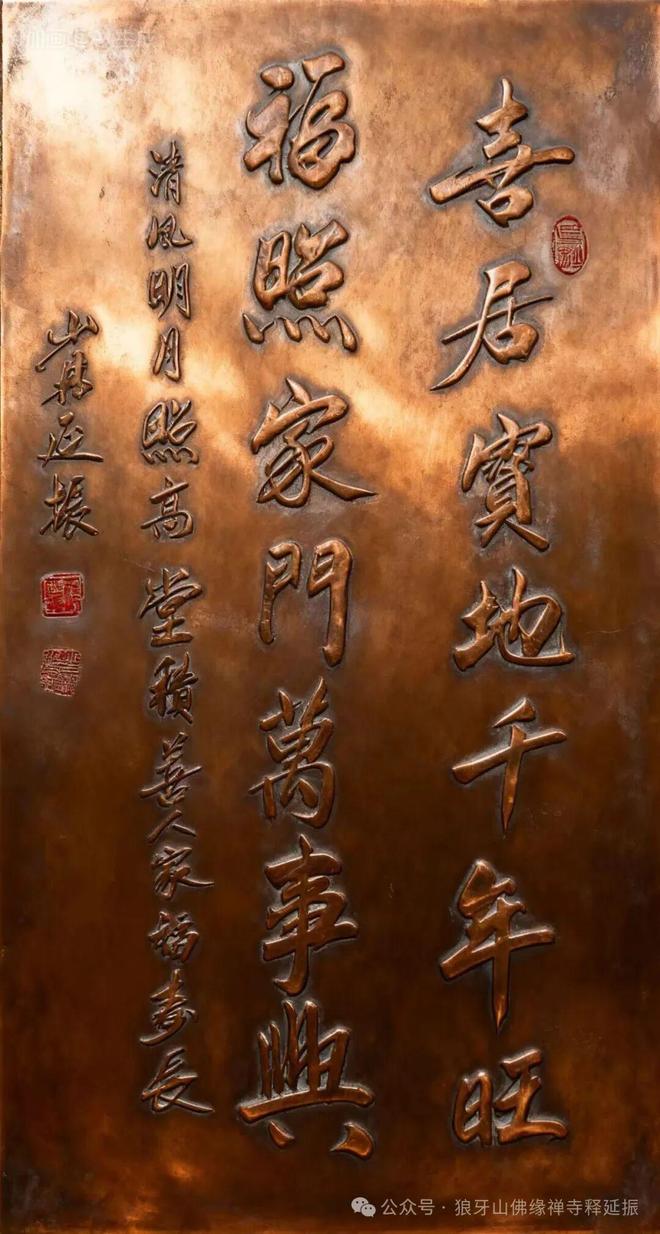 喜居寶地千年旺
福照家門萬事興
清风明月照高堂積善人家福寿長
延振
公众号 · 狼牙山佛缘禅寺释延振